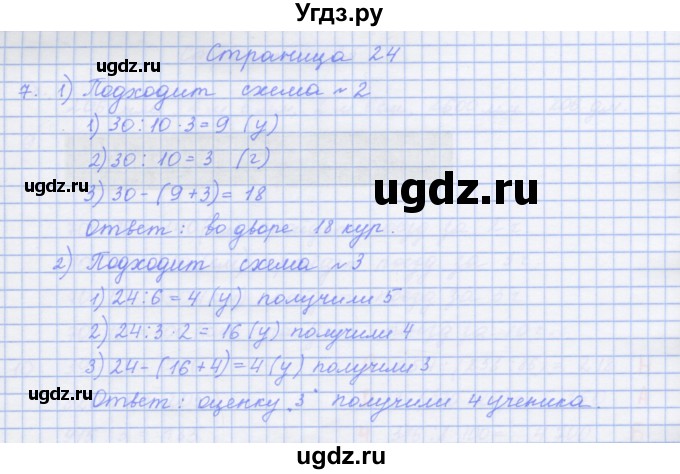 Угдз.ру
Страница 24
ugdz.ru
ugdz.ru
7. 1) Подходит схема №2
1) 30:10·3=9 (у)
2) 30:10=3 (г)
ugdz.ru
ugdz.ru
3) 30-(9+3)=18
Ответ: во дворе 18 кур.
2) Подходит схема №3
1) 24:6=4 (у) получили 5
2) 24:3·2=16 (у) получили 4
ugdz.ru
ugdz.ru
3) 24-(16+4)=4 (у) получили 3
Ответ: оценку „3" получили 4 ученика.
ugdz.ru
ugdz.ru